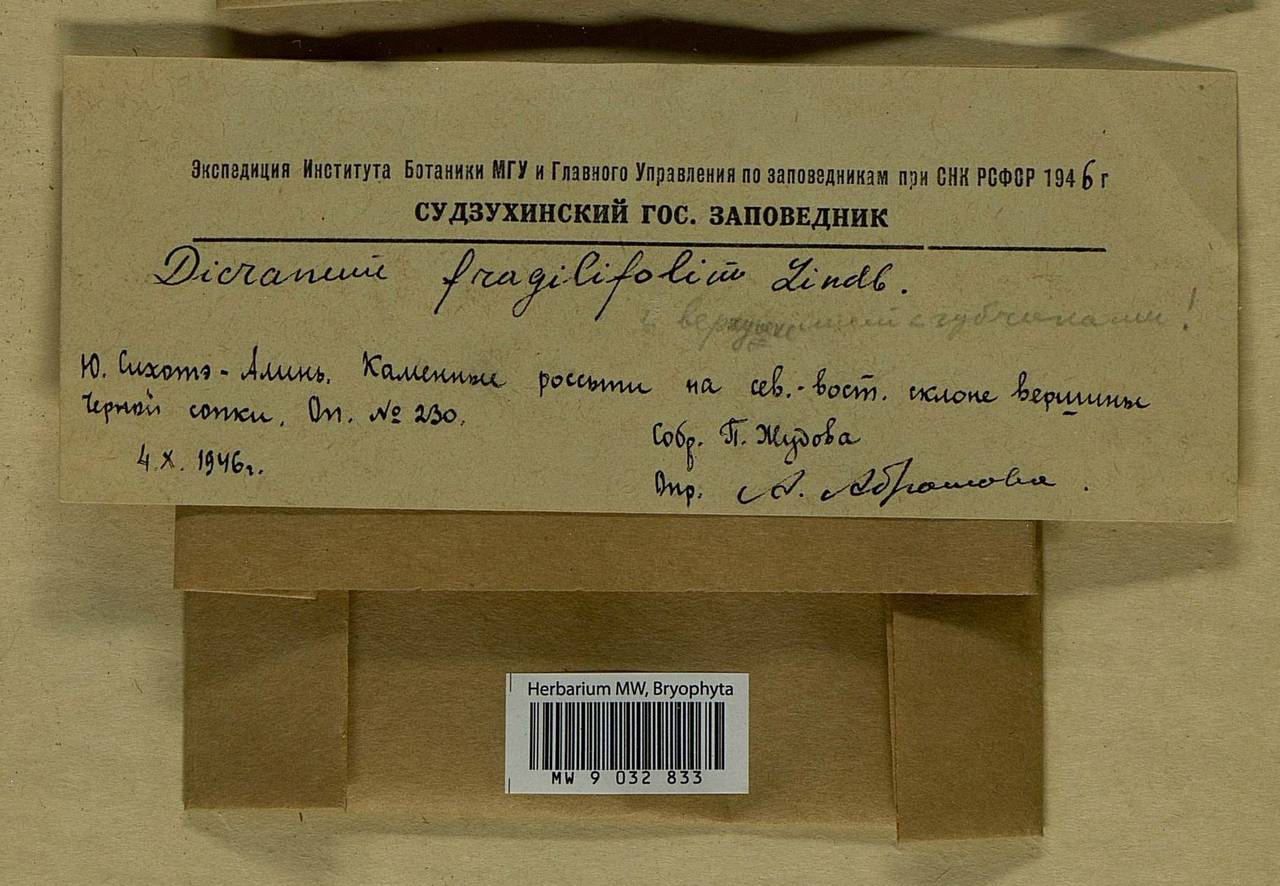 Экспедиция Института Ботаники МГУ и Главного Управления по заповедникам при СНК РСФСР 1946 г
СУДЗУХИНСКИЙ ГОС. ЗАПОВЕДНИК
Dicranum fragilifolium Lindb.
с губчиками!
Ю. Сихотэ-Алинь. Каменные россыпи на сев.-вост. склоне вершины
Черной сопки. Оп. № 230.
Собр. П. Жудова
4.X. 1946г.
Опр. А. Абрамова.
Herbarium MW, Bryophyta
MW 9 032 833